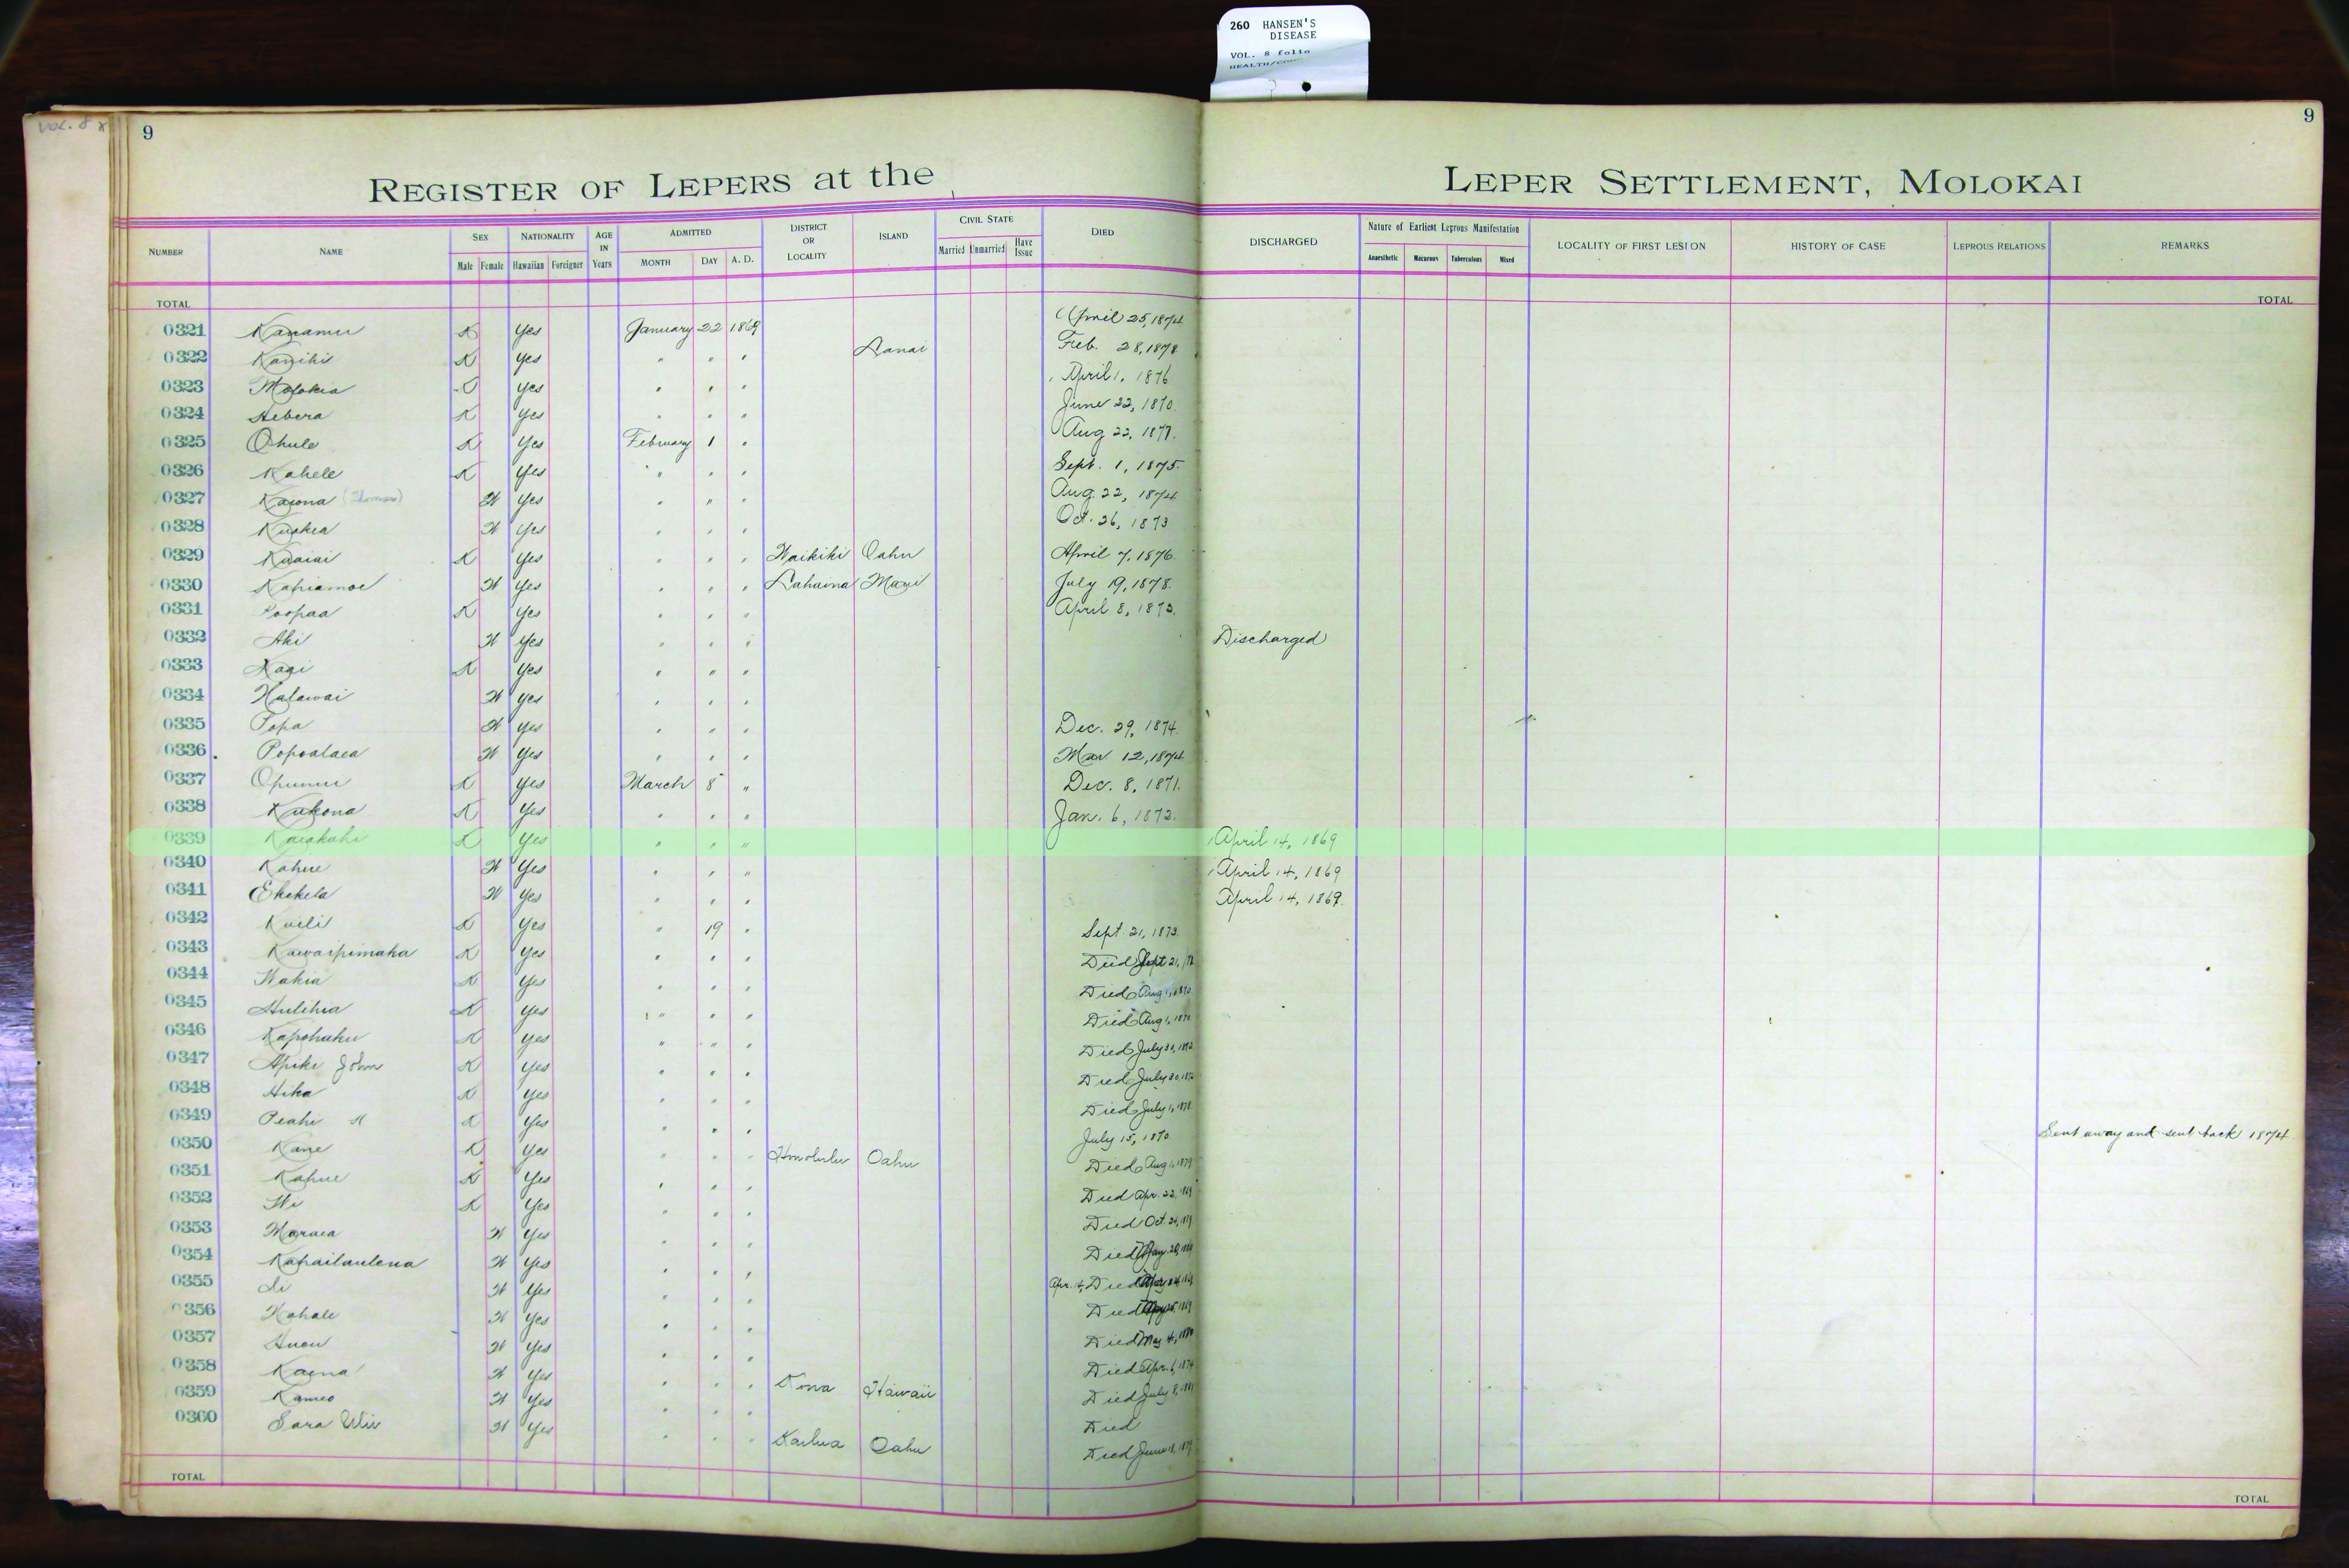 260 HANSEN'S
DISEASE
VOL. 8 folio
VOL. 8
9
9
REGISTER OF LEPERS at the LEPER SETTLEMENT, MOLOKAI
NUMBER NAME SEX Male Female NATIONALITY Hawaiian Foreigner AGE IN Years ADMITTED MONTH DAY A. D. DISTRICT OR LOCALITY ISLAND CIVIL STATE Married Unmarried Have Issue DIED DISCHARGED Nature of Earliest Leprous Manifestation Anaesthetic Macurous Tuberculous Mixed LOCALITY OF FIRST LESION HISTORY OF CASE LEPROUS RELATIONS REMARKS
TOTAL TOTAL
0321 Kanamu K Yes January 22 1869 April 25, 1874
0322 K Yes " " " Lanai Feb. 28, 1878
0323 Molokia Yes " " " April 1, 1876
0324 Hebera K Yes " " " June 22, 1870
0325 Ohule K Yes February 1 " Aug 22, 1877.
0326 Kahele K Yes " " " Sept. 1, 1875.
0327 Kaiona (Thomas) W Yes " " " Aug. 22, 1874
0328 Kuakea W Yes " " " Oct. 26, 1873
0329 Kuaiai K Yes " " " Waikiki Oahu April 7, 1876
0330 Kahiamoe W Yes " " " Lahaina Maui July 19, 1878.
0331 Poopaa K Yes " " " April 8, 1873.
0332 Aki W Yes " " " Discharged
0333 K Yes " " "
0334 Halawai W Yes " " "
0335 Popa W Yes " " " Dec. 29, 1874.
0336 Popoalaea W Yes " " " Mar. 12, 1874
0337 Opunui K Yes March 8 " Dec. 8, 1871.
0338 Kukona K Yes " " " Jan. 6, 1872.
0339 Kaiakahi K Yes " " " April 14, 1869
0340 Kahue W Yes " " " April 14, 1869
0341 Ekekela W Yes " " " April 14, 1869.
0342 Kuili K Yes " 19 " Sept. 21, 1873.
0343 Kawaipimaka K Yes " " " Died Sept 21,
0344 Wahia K Yes " " " Died Aug 1, 1870
0345 Hulihia K Yes " " " Died Aug 1, 1870
0346 Kapohaku K Yes " " " Died July 30, 1872
0347 Apiki John K Yes " " " Died July 30, 1872
0348 Hika K Yes " " " Died July 1, 1878
0349 Peahi K Yes " " " July 15, 1870. Sent away and sent back 1874.
0350 Kane K Yes " " " Honolulu Oahu Died Aug 1, 1879
0351 Kahue K Yes " " " Died Apr. 22, 1869
0352 Wi K Yes " " " Died Oct. 24, 1869
0353 Maraea W Yes " " " Died
0354 Kahailaulena W Yes " " " Apr. 14, Died
0355 Li W Yes " " " Died
0356 Kahale W Yes " " " Died May 4, 1880
0357 W Yes " " " Died Apr. 6, 1874
0358 Kaena W Yes " " " Kona Hawaii Died July 8, 1881
0359 Kameo W Yes " " " Died
0360 Sara W Yes " " " Kailua Oahu Died June 18, 1879
TOTAL TOTAL